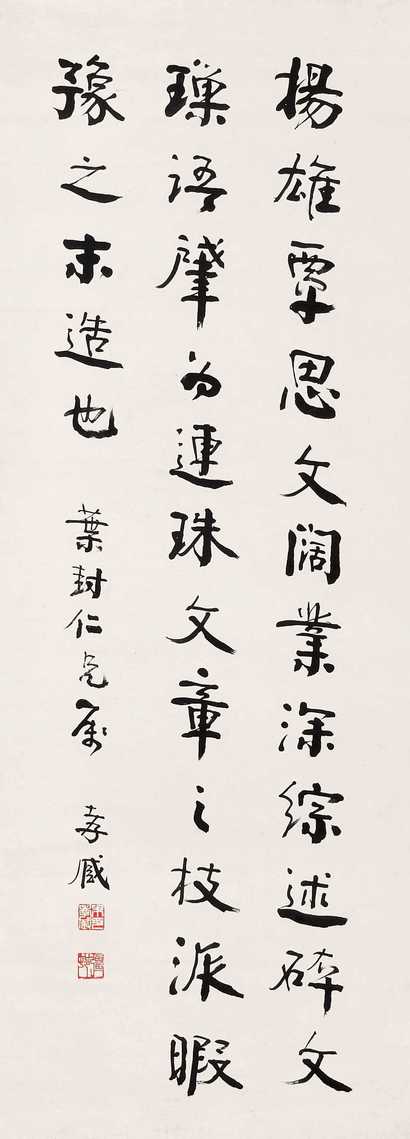 揚雄覃思文闊業深綜述碎文
璅語肇為連珠文章之枝派暇
豫之末造也
葉封仁兄屬
孝臧